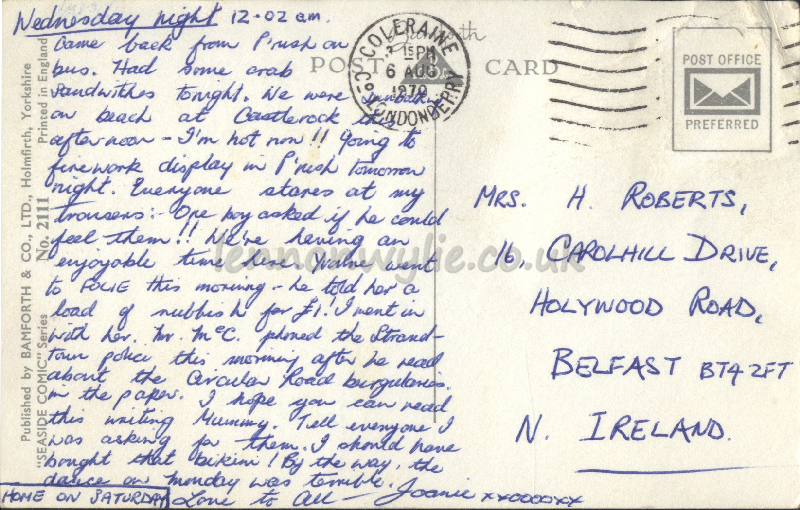 Wednesday night 12-02 a.m.
Came back from P'rush on
bus. Had some crab
sandwithes tonight. We were sunbathing
on beach at Castlerock this
afternoon - I'm hot now!! Going to
firework display in P'rush tomorrow
night. Everyone stares at my
trousers:- One boy asked if he could
feel them!! We're having an
enjoyable time here. went
to this morning - he told her a
load of rubbish for £1! I went in
with her. Mr. McC. phoned the Strand-
town police this morning after he read
about the Circular Road burgularies
in the paper. I hope you can read
this writing Mummy. Tell everyone I
was asking for them. I should have
bought that bikini! By the way, the
dance on Monday was terrible.
HOME ON SATURDAY
Love to All - Joanie xxooooxx
Published by BAMFORTH & CO., LTD., Holmfirth, Yorkshire
"SEASIDE COMIC" Series No. 2111 Printed in England
POST CARD
COLERAINE
6 AUG
1970
CO. LONDONDERRY
POST OFFICE
PREFERRED
MRS. H. ROBERTS,
16, CAROLHILL DRIVE,
HOLYWOOD ROAD,
BELFAST BT4 2FT
N. IRELAND.
lennonwylie.co.uk